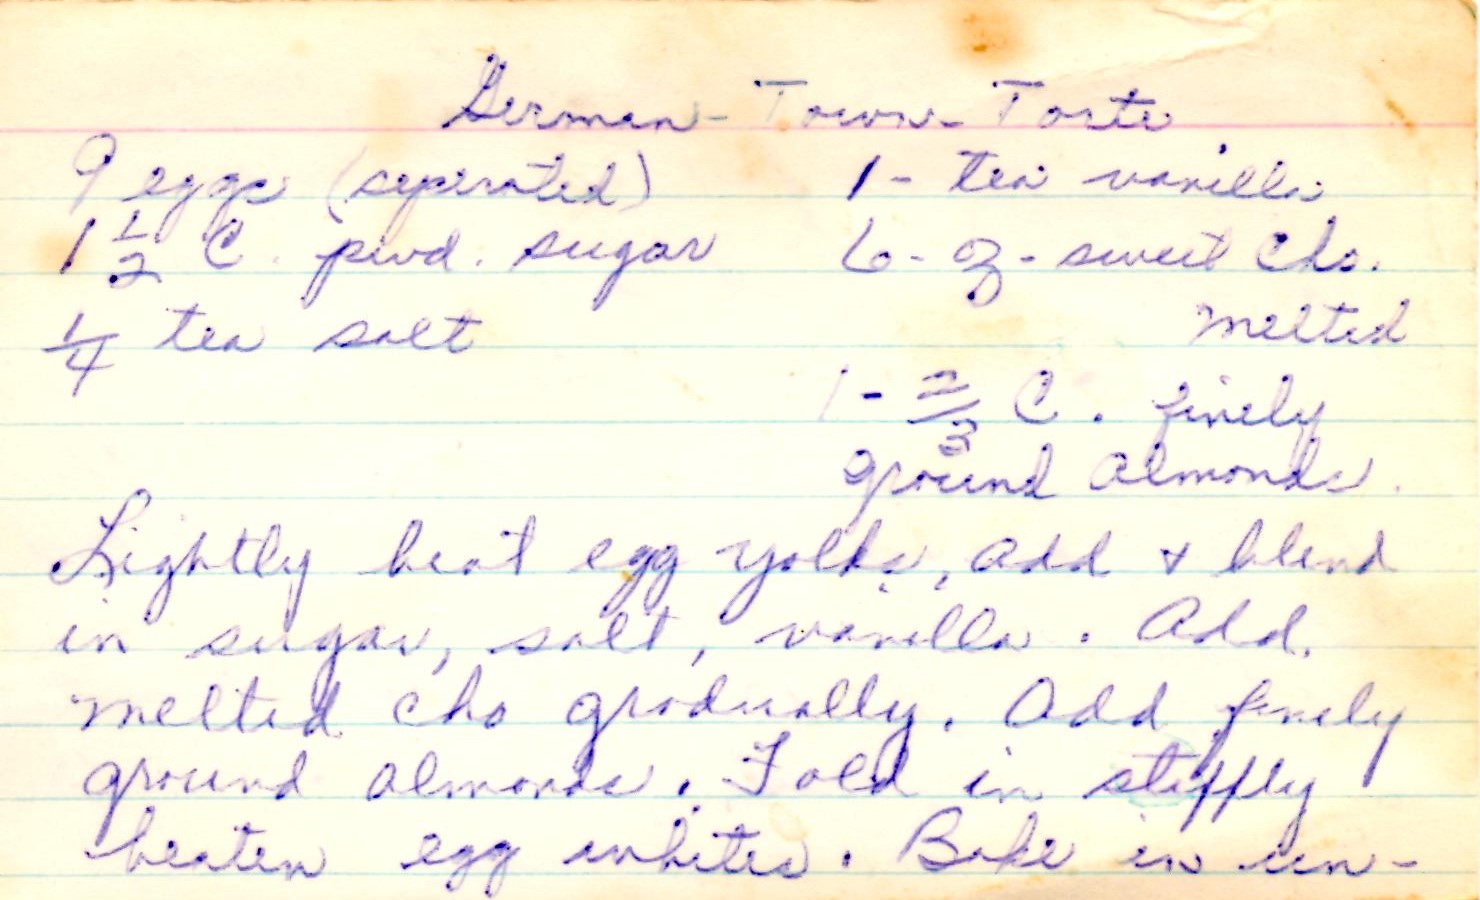 German-Town-Torte
9 eggs (seperated) 1- tea vanilla
1 1/2 C. pwd. sugar 6-oz-sweet cho.
1/4 tea salt melted
1-2/3 C. finely
ground almonds.
Lightly beat egg yolks, add & blend
in sugar, salt, vanilla. Add.
melted cho gradually. Add finely
ground almonds. Fold in stiffly
beaten egg whites. Bake in un-